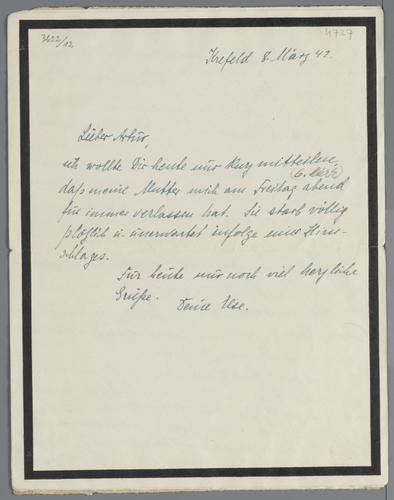 3422/12
4727
Krefeld 8. März 42.
Lieber Artur,
ich wollte Dir heute nur kurz mitteilen,
(6. März)
daß meine Mutter mich am Freitag abend
für immer verlassen hat. Sie starb völlig
plötzlich u. unerwartet infolge eines Hirn-
schlages.
Für heute nur noch viel herzliche
Grüße.
Deine Ilse.